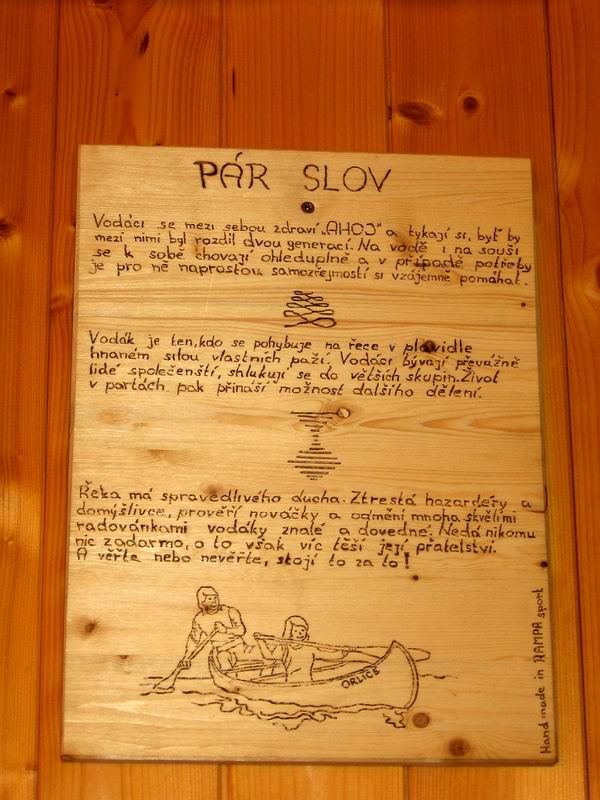 PÁR SLOV
Vodáci se mezi sebou zdraví „AHOJ" a tykají si, byť by
mezi nimi byl rozdíl dvou generací. Na vodě i na souši
se k sobě chovají ohleduplně a v případě potřeby
je pro ně naprostou samozřejmostí si vzájemně pomáhat.
Vodák je ten, kdo se pohybuje na řece v plavidle
hnaném silou vlastních paží. Vodáci bývají převážně
lidé společenští, shlukují se do větších skupin. Život
v partách pak přináší možnost dalšího dělení.
Řeka má spravedlivého ducha. Ztrestá hazardéry a
domýšlivce, prověří nováčky a odmění mnoha skvělími
radovánkami vodáky znalé a dovedné. Nedá nikomu
nic zadarmo, o to však víc těší její přátelství.
A věřte nebo nevěřte, stojí to za to!
ORLICE
Hand made in RAMPA sport